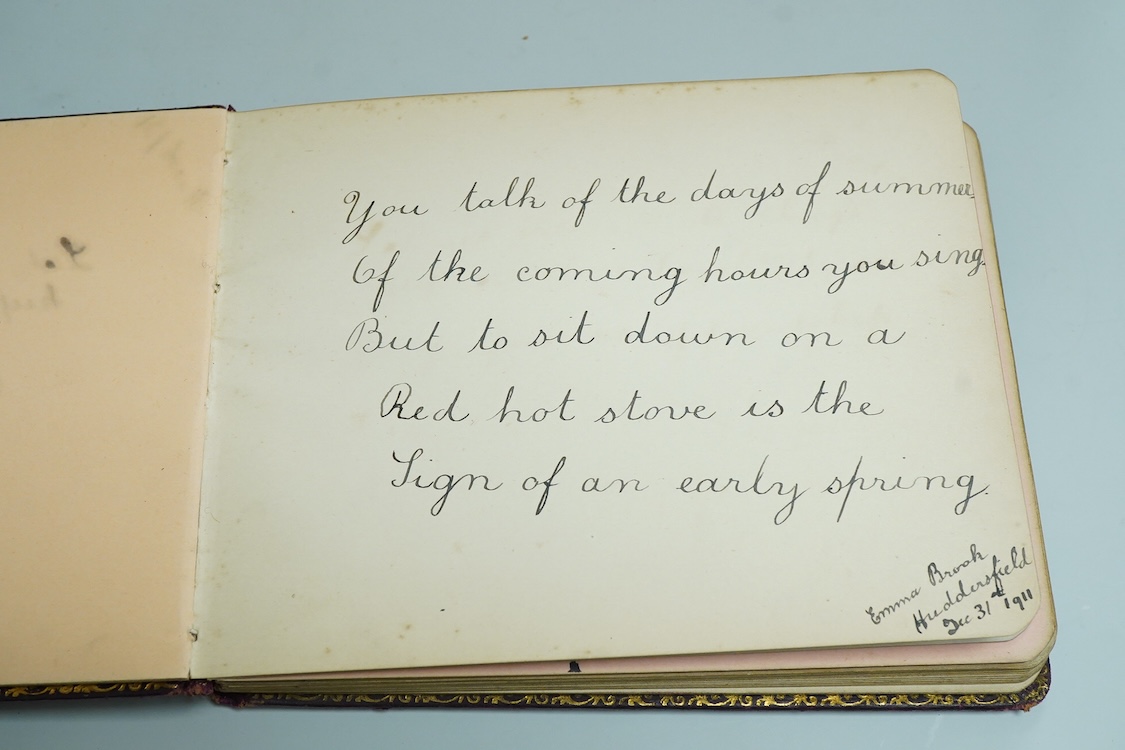 You talk of the days of summer
Of the coming hours you sing.
But to sit down on a
Red hot stove is the
Sign of an early spring.
Emma Brook
Huddersfield
Dec 31st 1911